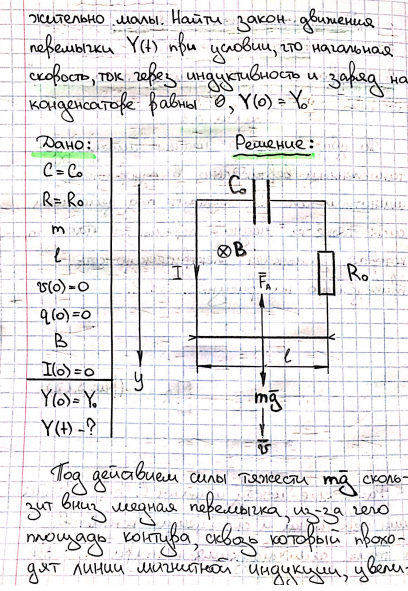 жительно малы. Найти закон движения
перемычки Y(t) при условии, что начальная
скорость, ток через индуктивность и заряд на
конденсаторе равны 0, Y(0) = Y₀
Дано:
C = C₀
R = R₀
m
l
v(0) = 0
q(0) = 0
B
I(0) = 0
Y(0) = Y₀
Y(t) - ?
Решение:
C₀
⊗B
I
R₀
F̄ₐ
l
y
mḡ
v̄
Под действием силы тяжести mḡ сколь-
зит вниз медная перемычка, из-за чего
площадь контура, сквозь который прохо-
дят линии магнитной индукции, увели-